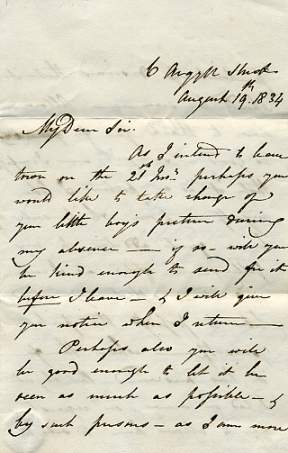 6 Argyll Street
August 19th. 1834
My Dear Sir.
As I intend to leave
town on the 21st Inst perhaps you
would like to take charge of
your little boy's picture during
my absence — if so — will you
be kind enough to send for it
before I leave — & I will give
you notice when I return —
Perhaps also you will
be good enough to let it be
seen as much as possible — &
by such persons — as I am more